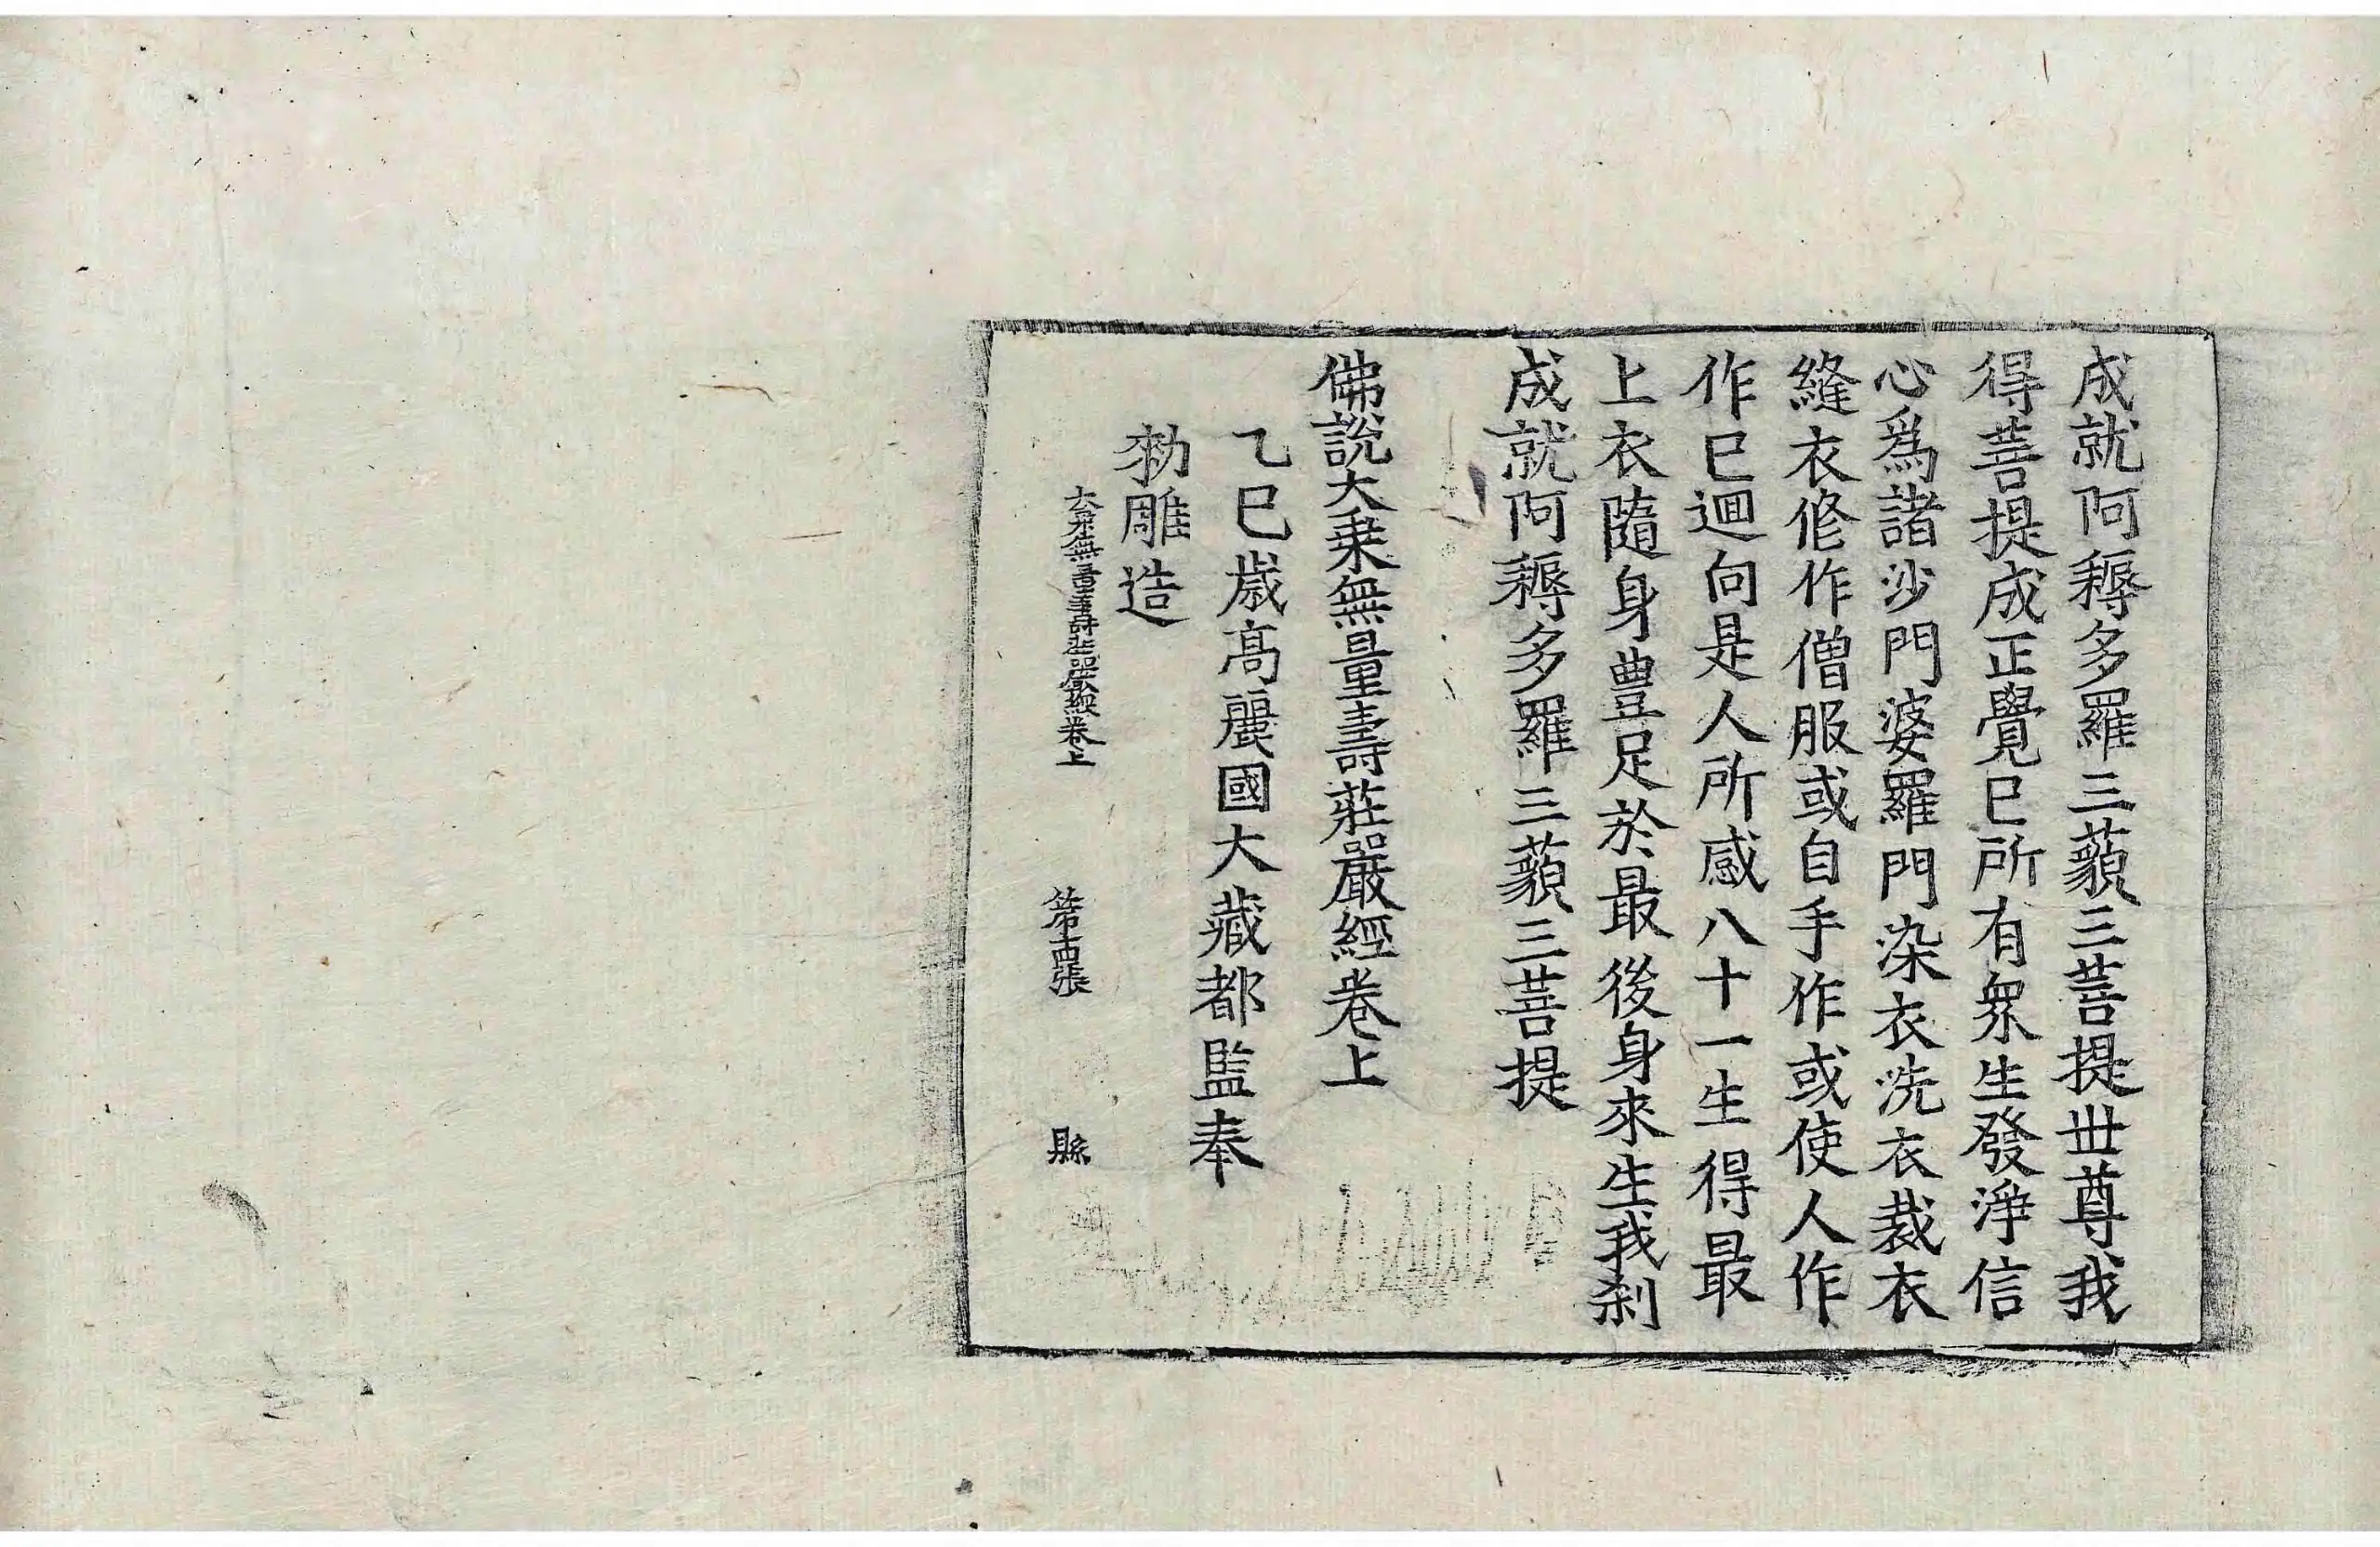 成就阿耨多羅三藐三菩提世尊我
得菩提成正覺已所有衆生發淨信
心爲諸沙門婆羅門染衣洗衣裁衣
縫衣修作僧服或自手作或使人作
作已迴向是人所感八十一生得最
上衣隨身豊足於最後身來生我刹
成就阿耨多羅三藐三菩提
佛說大乗無量壽莊嚴經卷上
乙巳歲高麗國大藏都監奉
勑雕造
大乗無量壽莊嚴經卷上 第十四張 縣